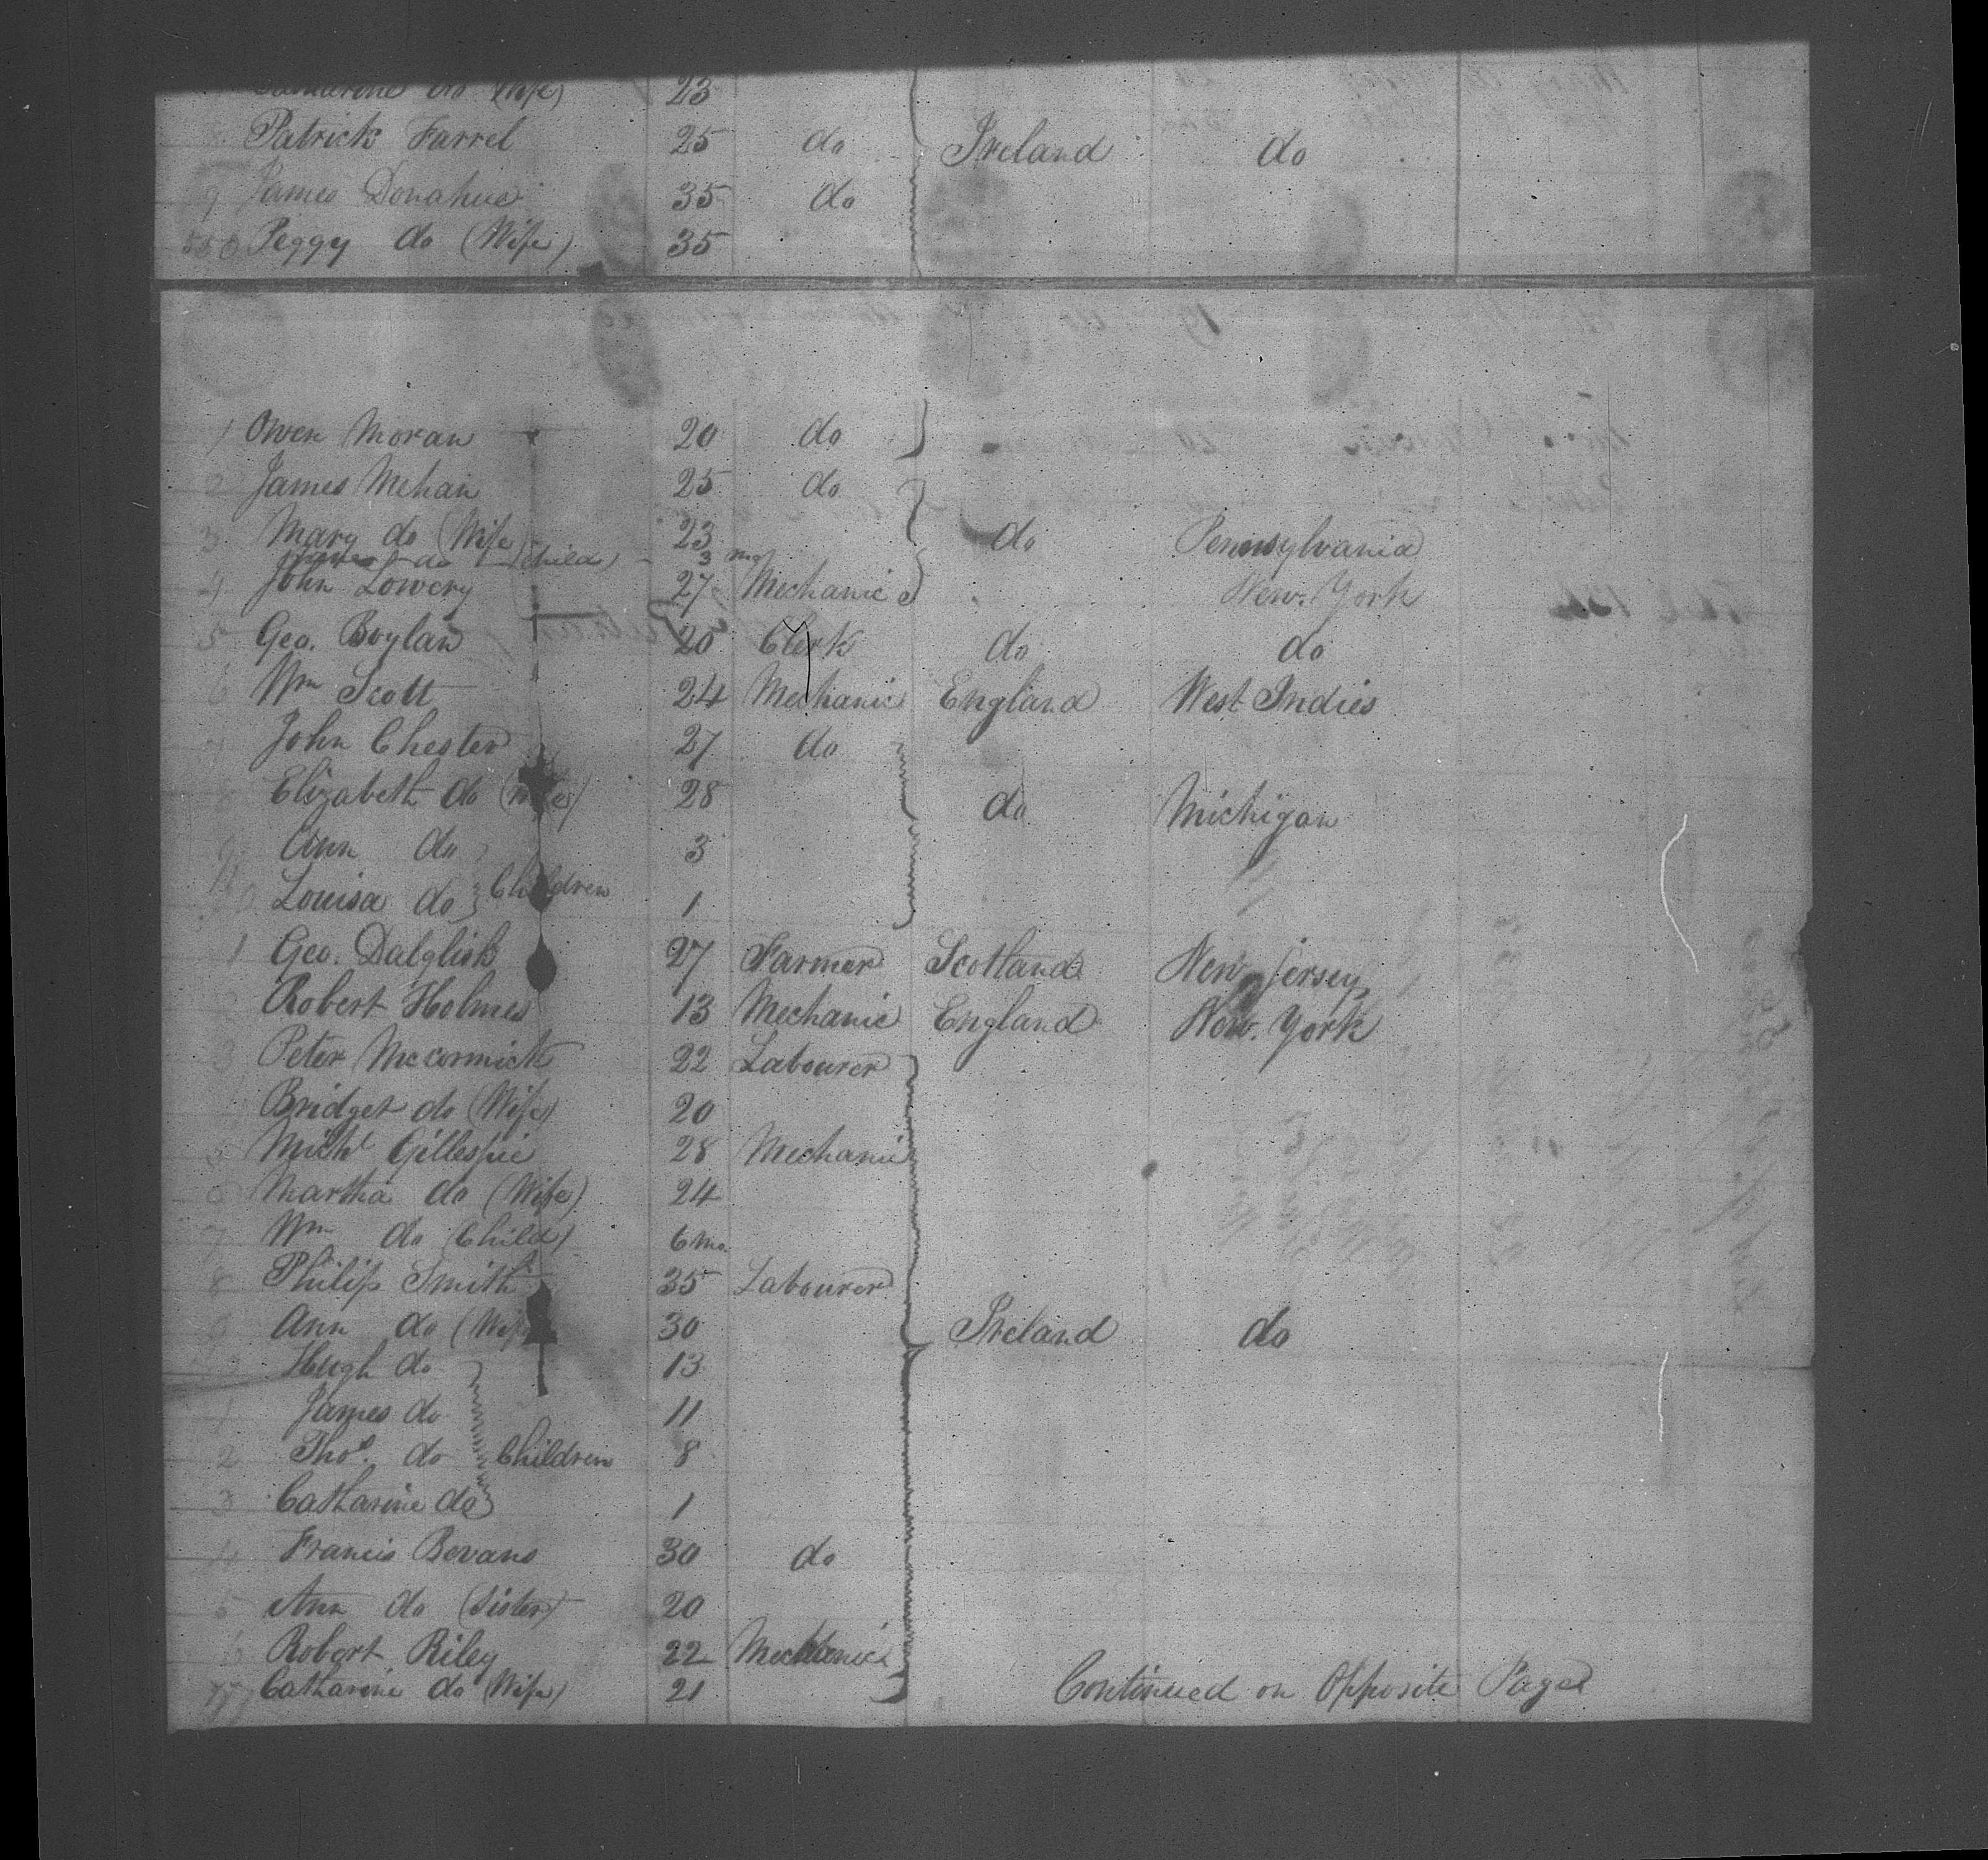 Catharine do (Wife) 23
Patrick Farrel 25 do Ireland do
9 James Donahue 35 do
550 Peggy do (Wife) 35
1 Owen Moran 20 do
2 James Mehan 25 do
3 Mary do (Wife) 23 do Pennsylvania
do (Child) 3 mo
4 John Lowery 27 Mechanic New. York
5 Geo. Boylan 20 Clerk do do
6 Wm Scott 24 Mechanic England West Indies
7 John Chester 27 do
8 Elizabeth do (Wife) 28 do Michigan
9 Ann do 3
Louisa do Children 1
1 Geo. Dalglish 27 Farmer Scotland New jersey
Robert Holmes 13 Mechanic England New. York
3 Peter McCormick 22 Labourer
Bridget do (Wife) 20
5 Michl Gillespie 28 Mechanic
6 Martha do (Wife) 24
7 Wm do (Child) 6 mo.
8 Philip Smith 35 Labourer
9 Ann do (Wife) 30 Ireland do
Hugh do 13
1 James do 11
2 Thos. do Children 8
3 Catharine do 1
4 Francis Bevans 30 do
5 Ann do (Sister) 20
6 Robert Riley 22 Mechanic
Catharine do (Wife) 21 Continued on Opposite Page